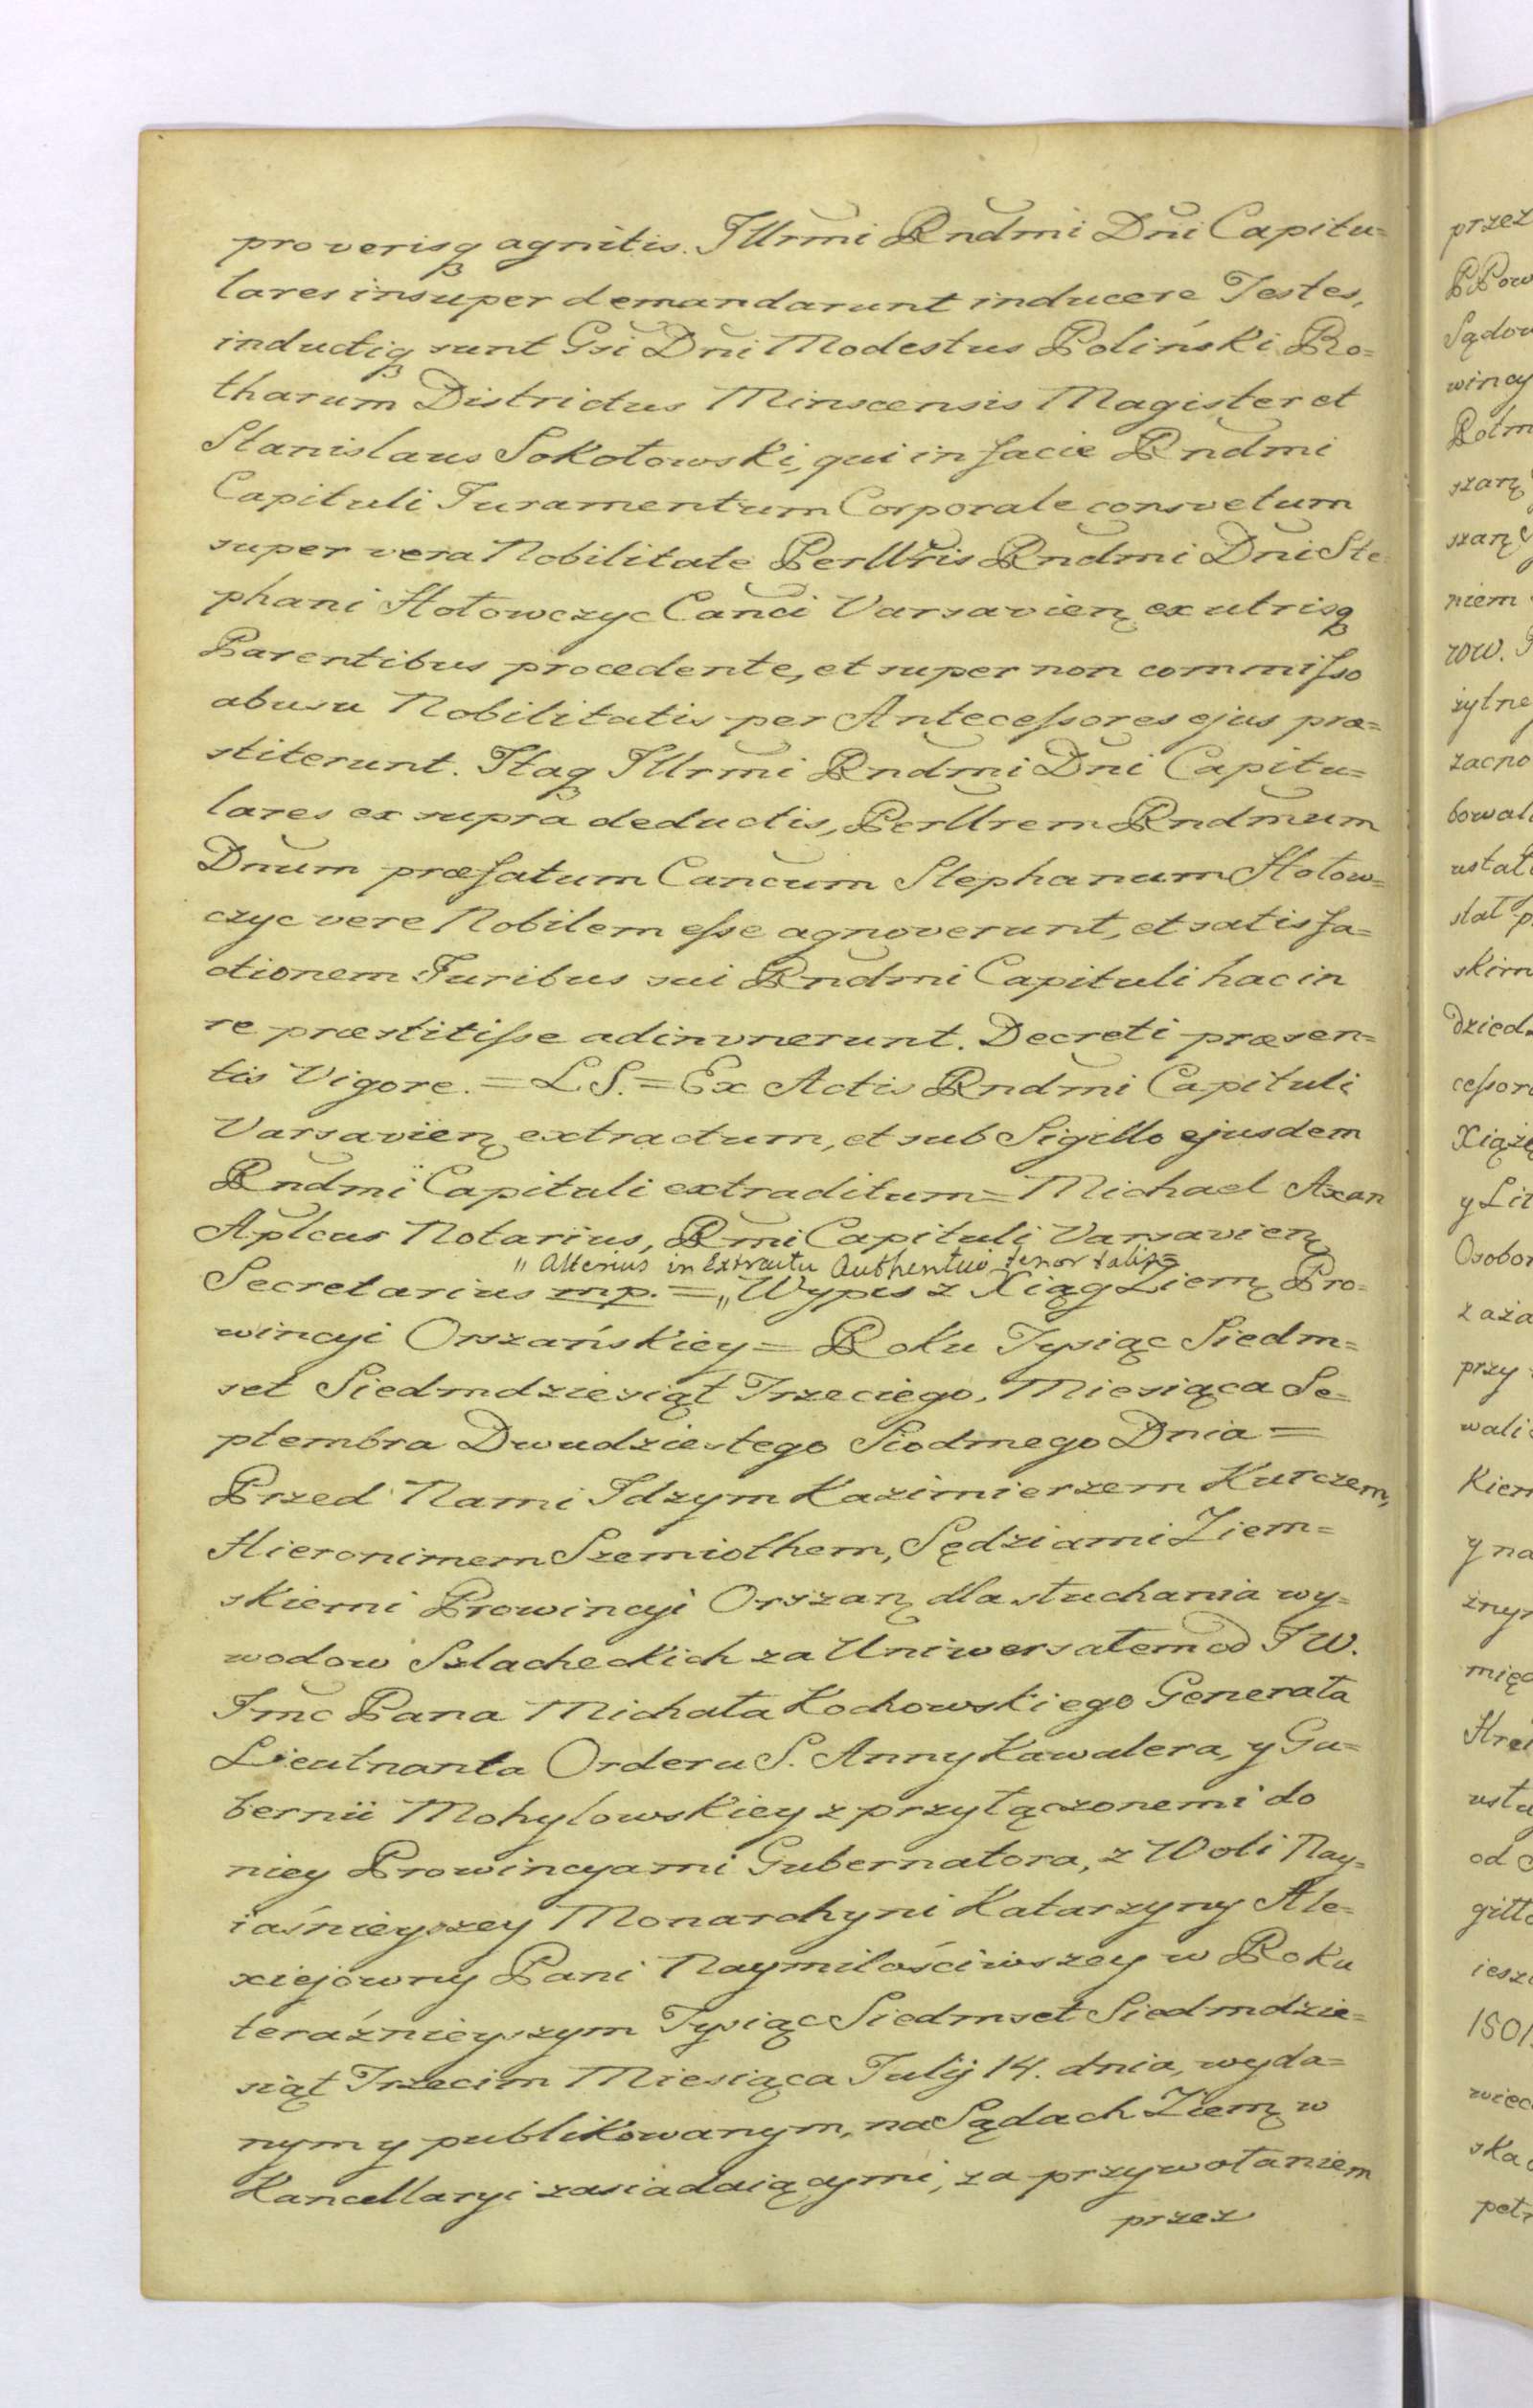 pro verisq agnitis. Illrmi Rndmi Dni Capitu=
lares insuper demandarunt inducere Testes,
inductiq sunt Gsi Dni Modestus Poliński Ro=
tharum Districtus Minscensis Magister et
Stanislaus Sokołowski, qui in facie Rndmi
Capituli Juramentum Corporale consvetum
super vera Nobilitate Perllris Rndmi Dni Ste
phani Hołowczyc Canci Varsavien ex utrisq
Parentibus procedente, et super non commisso
abusu Nobilitatis per Antecessores ejus præ=
stiterunt. Itaq Illrmi Rndmi Dni Capitu=
lares ex supra deductis, Perllrem Rndmum
Dnum præfatum Cancum Stephanum Hołow=
czyc vere Nobilem esse agnoverunt, et satisfa=
ctionem Juribus sui Rndmi Capituli hac in
re præstitisse adinvnerunt. Decreti præsen=
tis Vigore. = L.S. = Ex Actis Rndmi Capituli
Varsavien extractum, et sub Sigillo ejusdem
Rndmi Capituli extraditum = Michael Axan
Aplcus Notarius, Rmi Capituli Varsavien
„ Alterius in Extractu Authentico tenor talis=
Secretarius mp. = „Wypis z Xiąg Ziem Pro=
wincyi Orszańskiey = Roku Tysiąc Siedm=
set Siedmdziesiąt Trzeciego, Miesiąca Se=
ptembra Dwudziestego Siodmego Dnia =
Przed Nami Idzym Kazimierzem Kurczem,
Hieronimem Szemiothem, Sędziami Ziem=
skiemi Prowincyi Orszan dla słuchania wy=
wodow Szlacheckich za Uniwersałem od J W.
Jmc Pana Michała Kochowskiego Generała
Lieutnanta Orderu S. Anny Kawalera, y Gu=
bernii Mohylowskiey z przyłączonemi do
niey Prowincyami Gubernatora, z Woli Nay=
iaśnieyszey Monarchyni Katarzyny Ale=
xiejowny Pani Naymiłościwszey w Roku
teraźnieyszym Tysiąc Siedmset Siedmdzie=
siąt Trzecim Miesiąca Julij 14. dnia, wyda=
nym y publikowanym, na Sądach Ziem w
Kancellaryi zasiadaiącymi, za przywołaniem
przez
przez
PPow
Sądow
wincy
Rotm
szan
szan
niem
row.
żytne
zacno
bowali
ustał
stał p
skim
dzied
cessor
Xiążę
y Lit
Osobo
zaża
przy
wali
Kiem
y na
żnym
międ
Hre
ustu
od
gitto
iesz
1501
więc
ska
petr